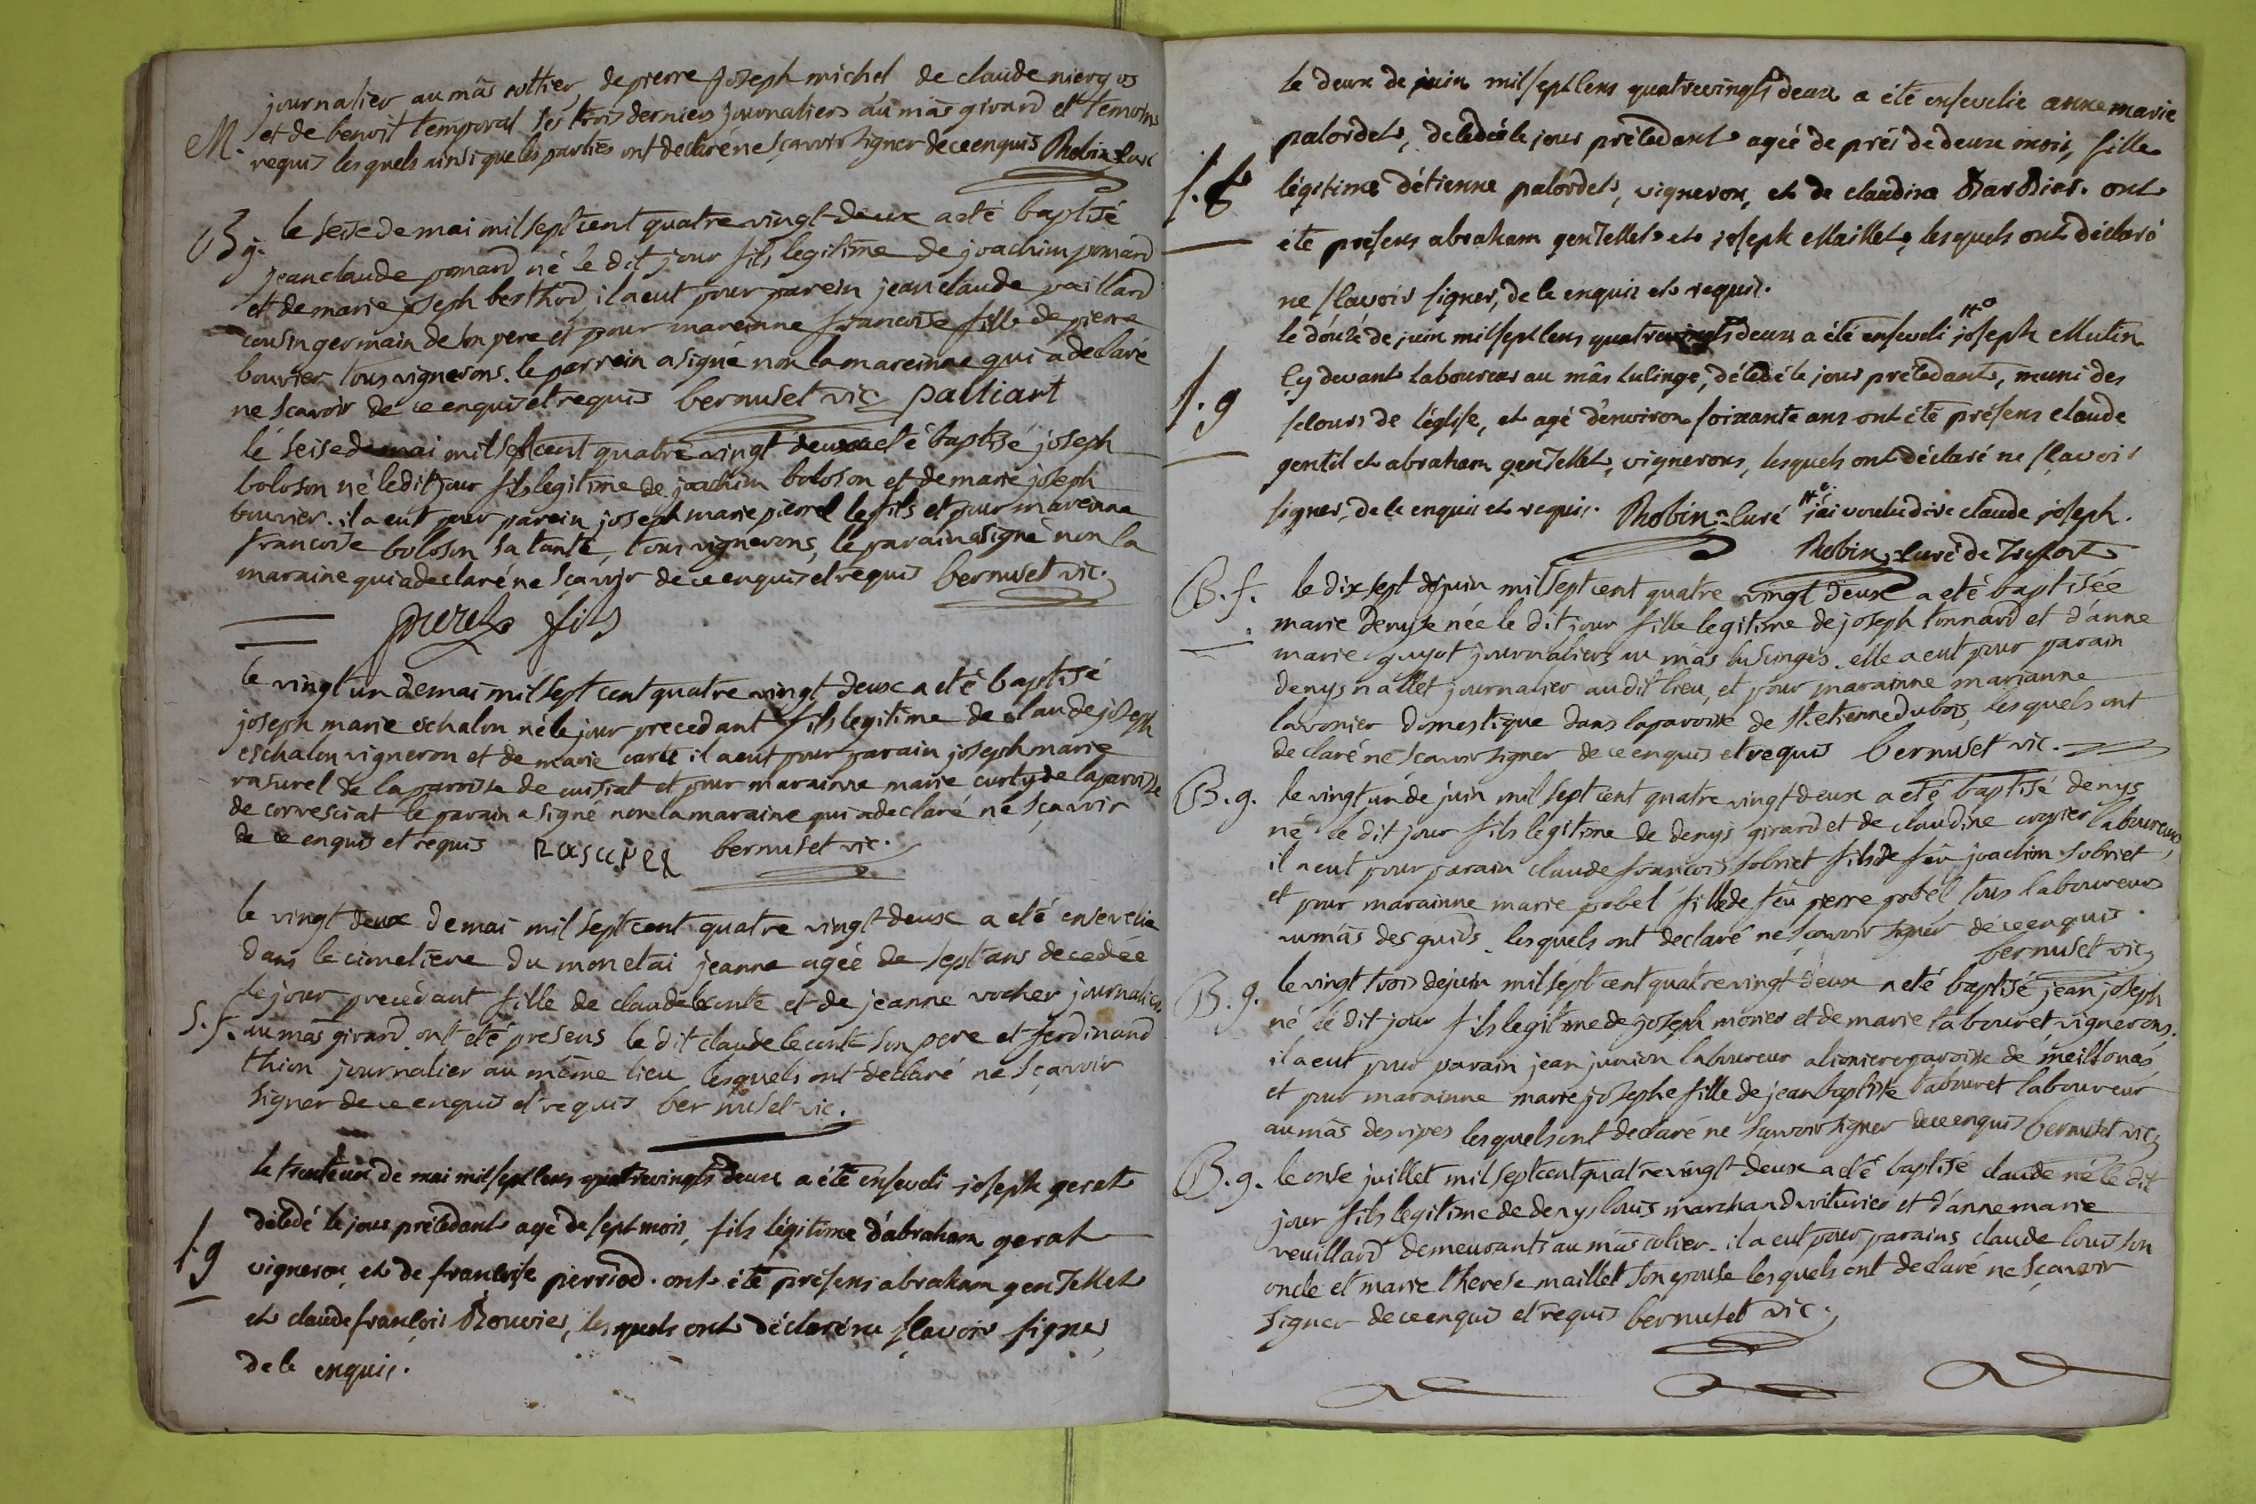 journalier au mâs cottier, de pierre joseph michel de claude niergos
M. et de benoit temporal les trois derniers journaliers au mâs girard et temoins
requis lesquels ainsi que les parties ont declaré ne sçavoir signer de ce enquis Robin curé
B g. le seise de mai mil sept cent quatre vingt deux a eté baptisé
jean claude ponard né le dit jour fils legitime de joachim ponard
et de marie joseph berthod il a eut pour parein jean claude paillard
cousin germain de son pere et pour mareinne francoise fille de pierre
bouvier tous vignerons. le parrein a signé non la mareinne qui a declaré
ne scavoir de ce enquis et requis bernuset vic palliart
lé seise de mai mil sept cent quatre vingt deux a eté baptisé joseph
boloson né le dit jour fils legitime de joachim boloson et de marie joseph
bouvier. il a eut pour parein joseph marie pierrel le fils et pour mareinne
francoise boloson sa tante, tous vignerons, le parain a signé non la
maraine qui a declaré ne sçavoir de ce enquis et requis bernuset vic.
fils
le vingt un de mai mil sept cent quatre vingt deux a eté baptisé
joseph marie eschalon né le jour precedant fils legitime de claude joseph
eschalon vigneron et de marie carte il a eut pour parain joseph marie
rasurel de la paroisse de cuisiat et pour marainne marie curty de la paroisse
de corresciat le parain a signé non la maraine qui a declaré ne sçavoir
de ce enquis et requis rasurel bernuset vic.
le vingt deux de mai mil sept cent quatre vingt deux a eté ensevelie
dans le cimetiere du monetai jeanne agée de sept ans decedée
le jour precedant fille de claude leconte et de jeanne vocher journaliers
S. f. au mas girard. ont eté presens le dit claude leconte son pere et ferdinand
thion journalier au même lieu lesquels ont declaré ne sçavoir
signer de ce enquis et requis bernuset vic.
le trente un de mai mil sept cens quatrevingts deux a été enseveli joseph gerat
décédé le jour précédant agé de sept mois, fils légitime d'abraham gerat
S. g vigneron et de francoise pierriod. ont été présens abraham genTellet
et claude françois Bouvier, lesquels ont déclaré ne sçavoir signer,
de ce enquis.
le deux de juin mil sept cens quatrevingts deux a été ensevelie anne marie
palordet, decedée le jour précédant agée de prés de deux mois, fille
S. f légitime d'étienne palordet, vigneron, et de claudine BarBier. ont
été présens abraham genTellet et joseph Maillet, lesquels ont déclaré
ne sçavoir signer, de ce enquis et requis.
le douze de juin mil sept cens quatrevingts deux a été enseveli joseph Mutin
S. g cy devant laboureur au mâs lulinge, décédé le jour précédant, muni des
secours de l'église, et agé d'environ soixante ans ont été présens claude
gentil et abraham genTellet, vignerons, lesquels ont déclaré ne sçavoir
signer, de ce enquis et requis. Robin curé j'ai voulu dire claude joseph.
Robin, curé de Treffort
B. f. le dix sept de juin mil sept cent quatre vingt deux a eté baptisée
marie denyse née le dit jour fille legitime de joseph tonnard et d'anne
marie guyot journaliers au mâs lusinges. elle a eut pour parain
denys nallet journalier au dit lieu, et pour marainne marianne
lavonier domestique dans la paroisse de St. etienne du bois, lesquels ont
declaré ne scavoir signer de ce enquis et requis bernuset vic.
B. g. le vingt un de juin mil sept cent quatre vingt deux a eté baptisé denys
né le dit jour fils legitime de denys girard et de claudine croyier laboureurs,
il a eut pour parain claude francois sobriet fils de feu joachim sobriet
et pour marainne marie gobel fille de feu pierre gobel, tous laboureurs
au mâs des guids. lesquels ont declaré ne sçavoir signer de ce enquis.
bernuset vic
B. g. le vingt trois de juin mil sept cent quatre vingt deux a eté baptisé jean joseph
né le dit jour fils legitime de joseph monier et de marie tabouret vignerons.
il a eut pour parain jean junion laboureur a lionieres paroisse de meillonas
et pour marainne marie josephe fille de jean baptiste tabouret laboureur
au mâs des ripes lesquels ont declaré ne sçavoir signer de ce enquis bernuset vic
B. g. le onse juillet mil sept cent quatre vingt deux a eté baptisé claude né le dit
jour fils legitime de denys louis marchand voiturier et d'anne marie
veuillard demeurants au mâs colier. il a eut pour parains claude louis son
oncle et marie therese maillet son epouse lesquels ont declaré ne sçavoir
signer de ce enquis et requis bernuset vic.